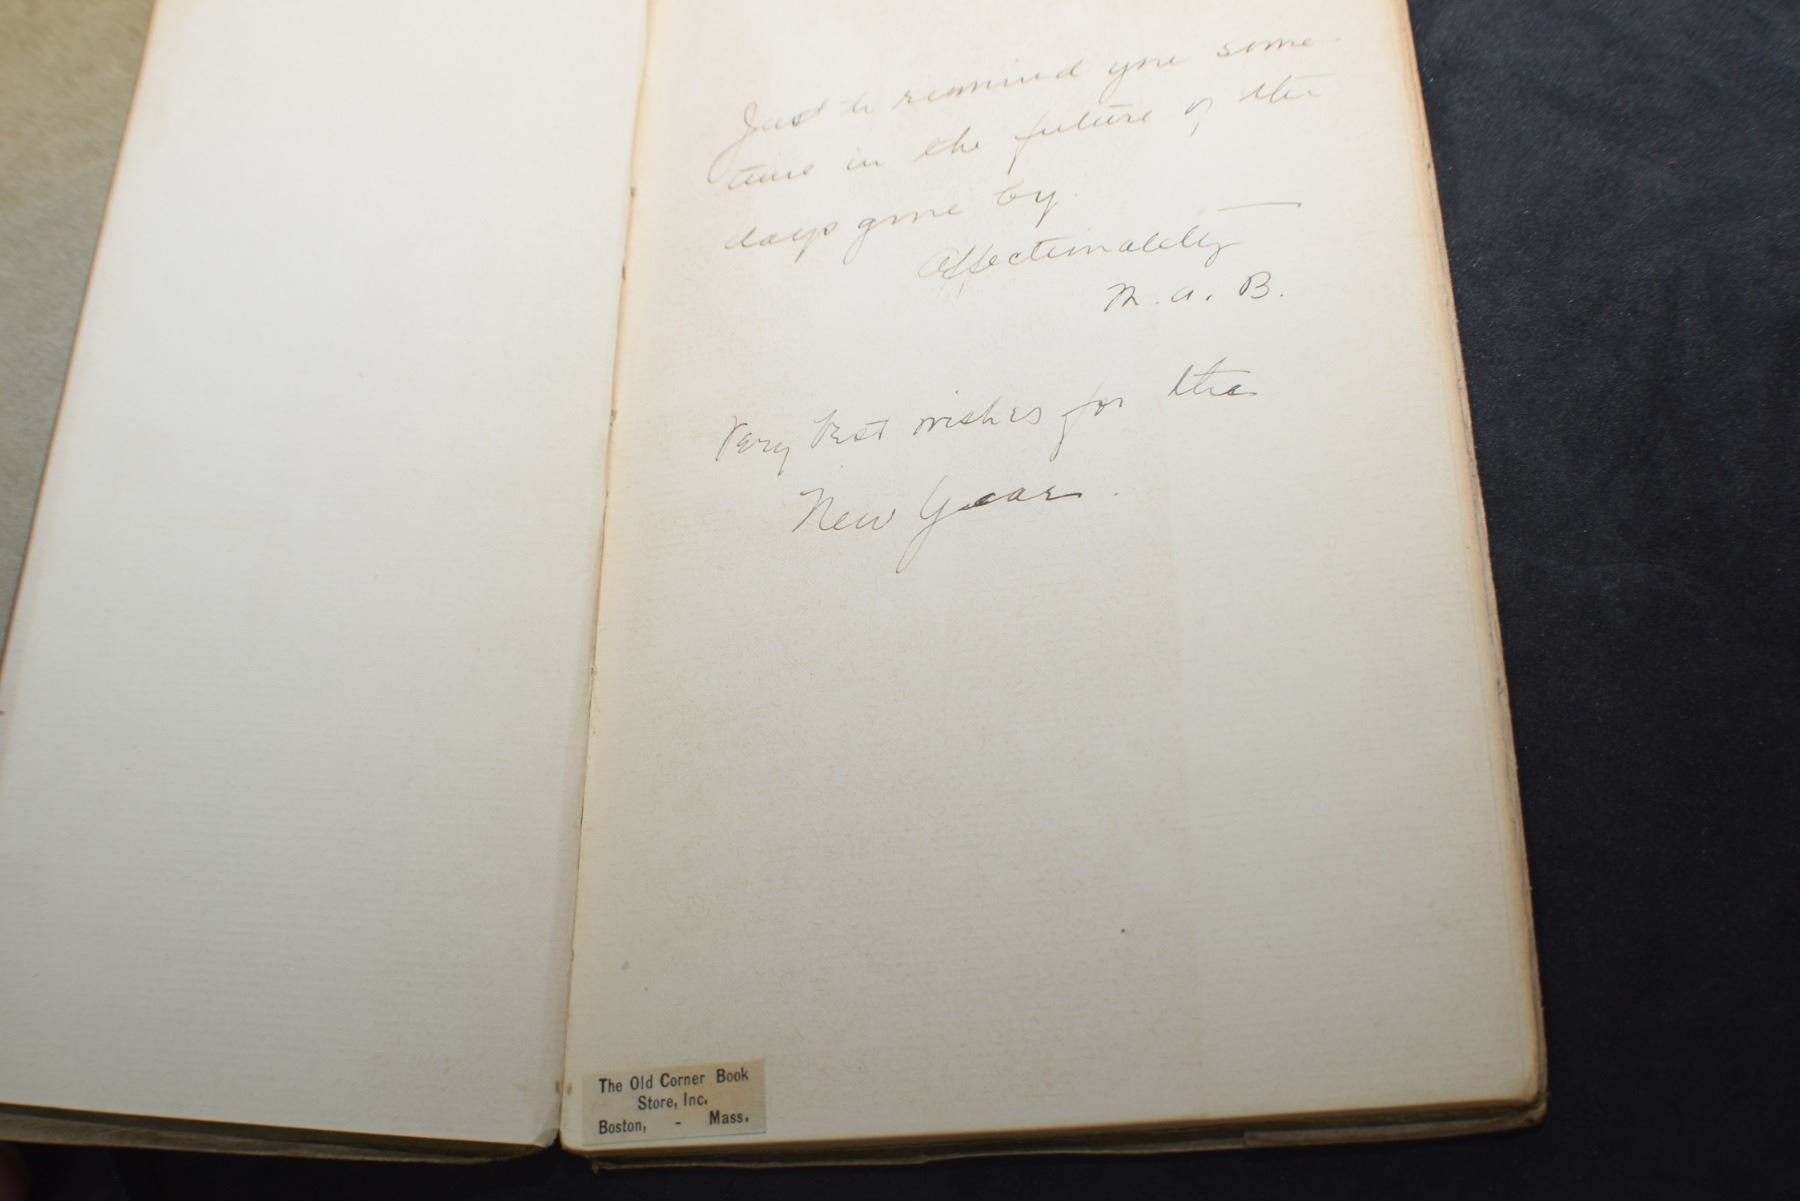 Just to remind you some-
time in the future of the
days gone by.
Affectionately
M. A. B.
Very best wishes for the
New Year.
The Old Corner Book
Store, Inc.
Boston, - Mass.